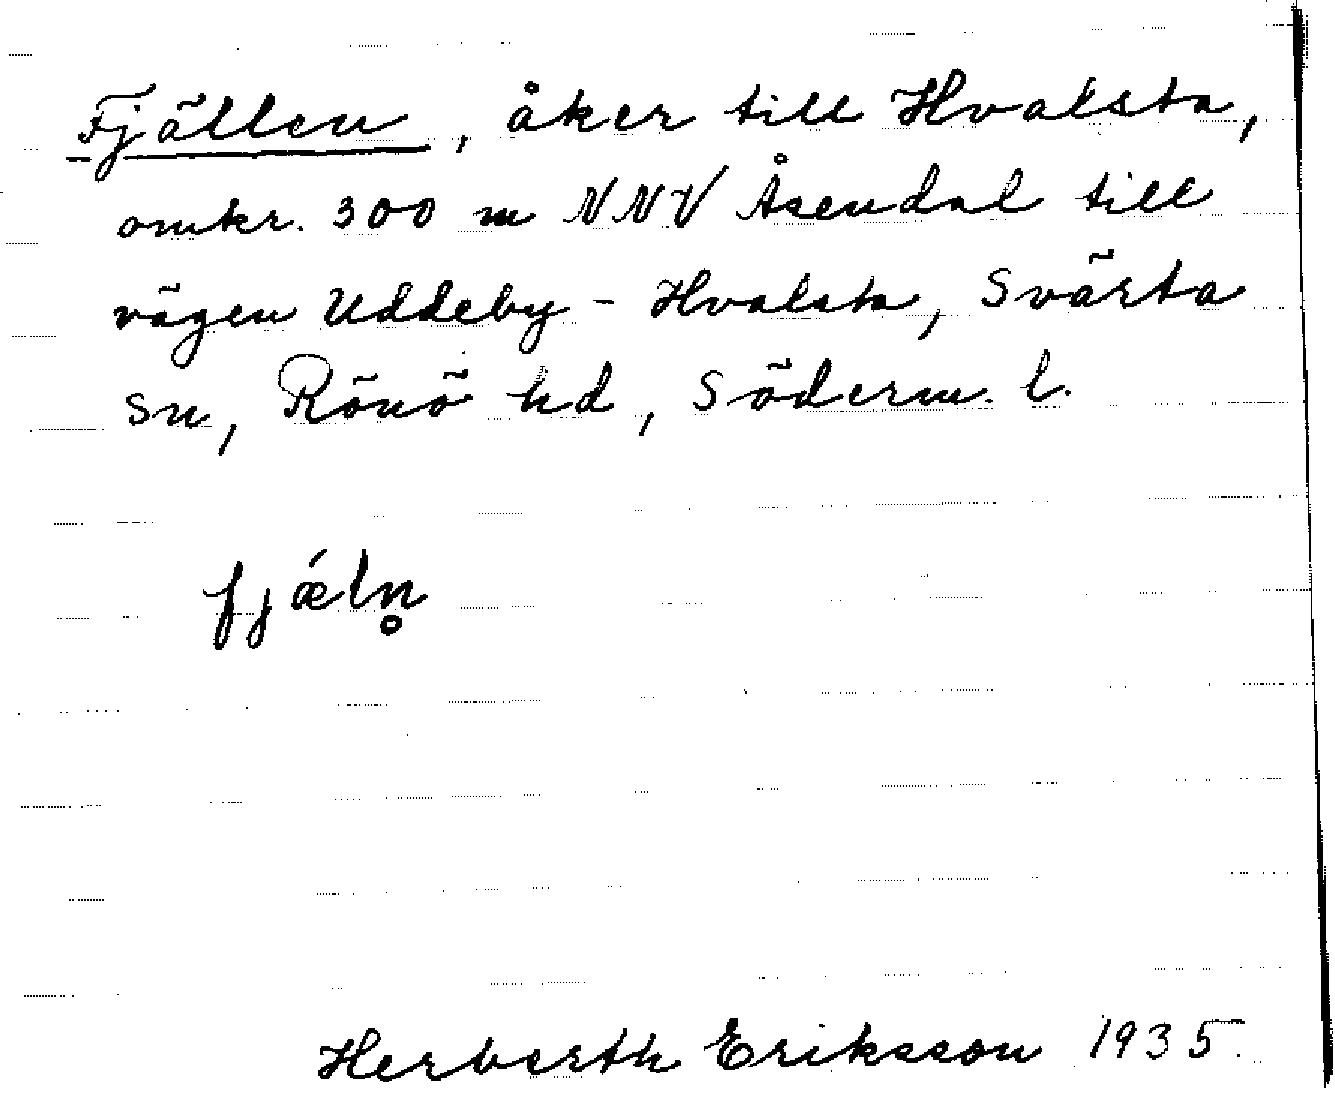 Fjällen, åker till Hvalsta,
omkr. 300 m NNV Åsendal till
vägen Uddeby - Hvalsta, Svärta
sn, Rönö hd, Söderm. l.
fjǽln̥
Herberth Eriksson 1935.